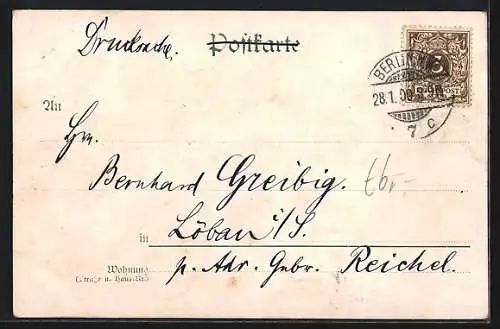 Drucksache. Postkarte
BERLIN
3
28.1.00
7 c
An
Hrn.
Bernhard Greibig.
in Löbau i/S.
Wohnung
(Straße u. Hausnr.)
p. Adr. Gebr. Reichel.